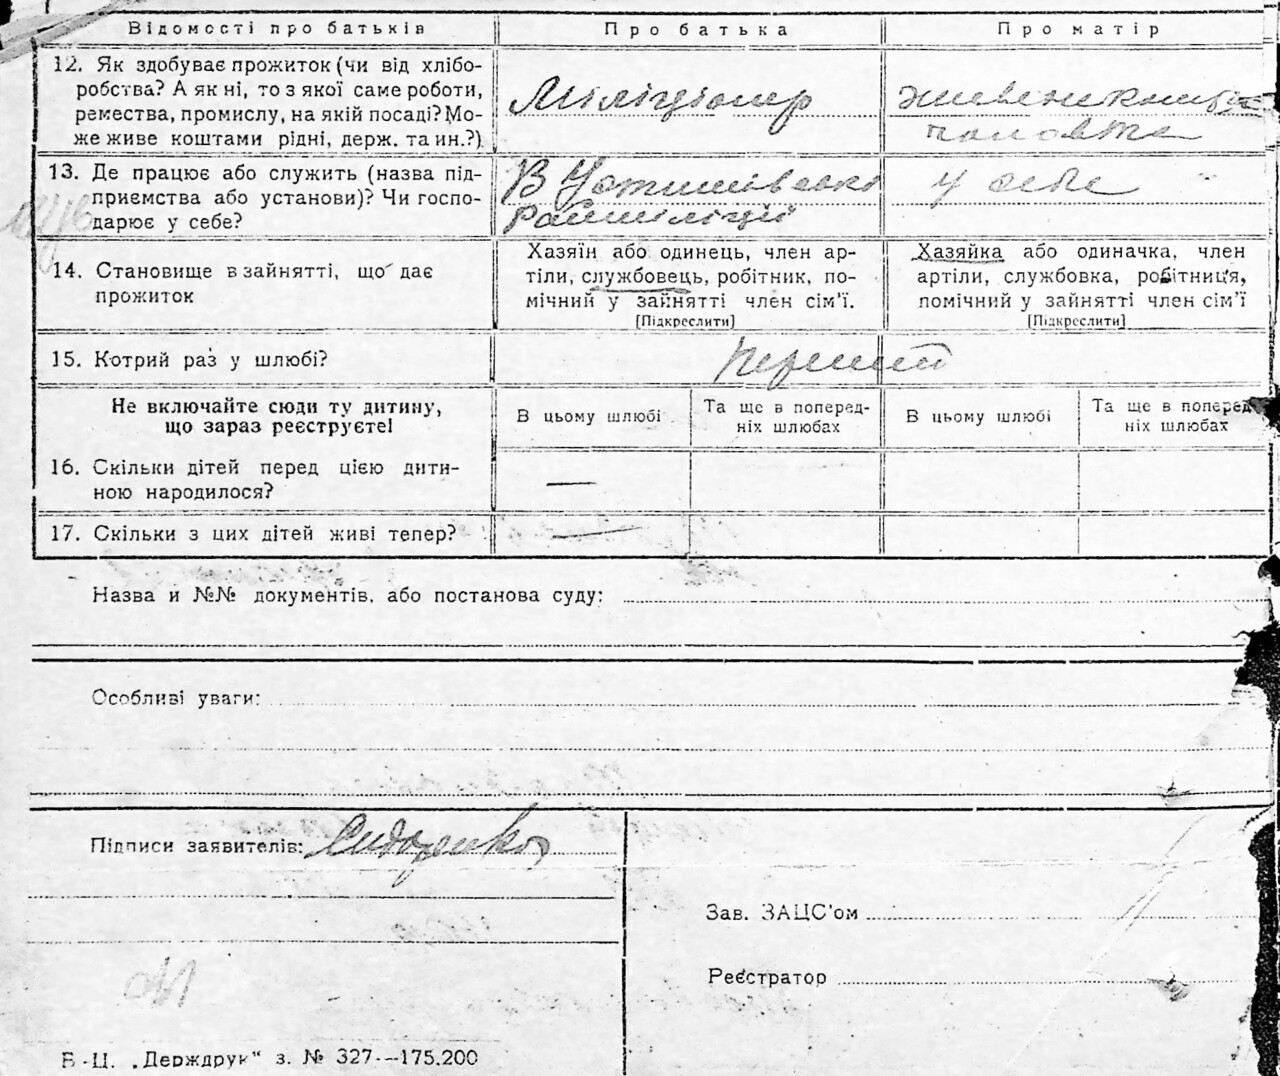 Відомості про батьків Про батька Про матір
12. Як здобуває прожиток (чи від хлібо-
робства? А як ні, то з якої саме роботи,
ремества, промислу, на якій посаді? Мо-
же живе коштами рідні, держ. та ин.?)
Міліціонер
живе на кошти
чоловіка
13. Де працює або служить (назва під-
приємства або установи)? Чи госпо-
дарює у себе?
В
Райміліції
у себе
14. Становище в зайнятті, що дає
прожиток
Хазяїн або одинець, член ар-
тіли, службовець, робітник, по-
мічний у зайнятті член сім'ї.
[Підкреслити]
Хазяйка або одиначка, член
артіли, службовка, робітниця,
помічний у зайнятті член сім'ї
[Підкреслити]
15. Котрий раз у шлюбі?
перший
Не включайте сюди ту дитину,
що зараз реєструєте!
В цьому шлюбі
Та ще в поперед-
ніх шлюбах
В цьому шлюбі
Та ще в поперед-
ніх шлюбах
16. Скільки дітей перед цією дити-
ною народилося?
—
17. Скільки з цих дітей живі тепер?
—
Назва и №№ документів, або постанова суду:
Особливі уваги:
Підписи заявителів: Сидоренко
Зав. ЗАЦС'ом
Реєстратор
В-Ц. „Держдрук" з. № 327—175.200